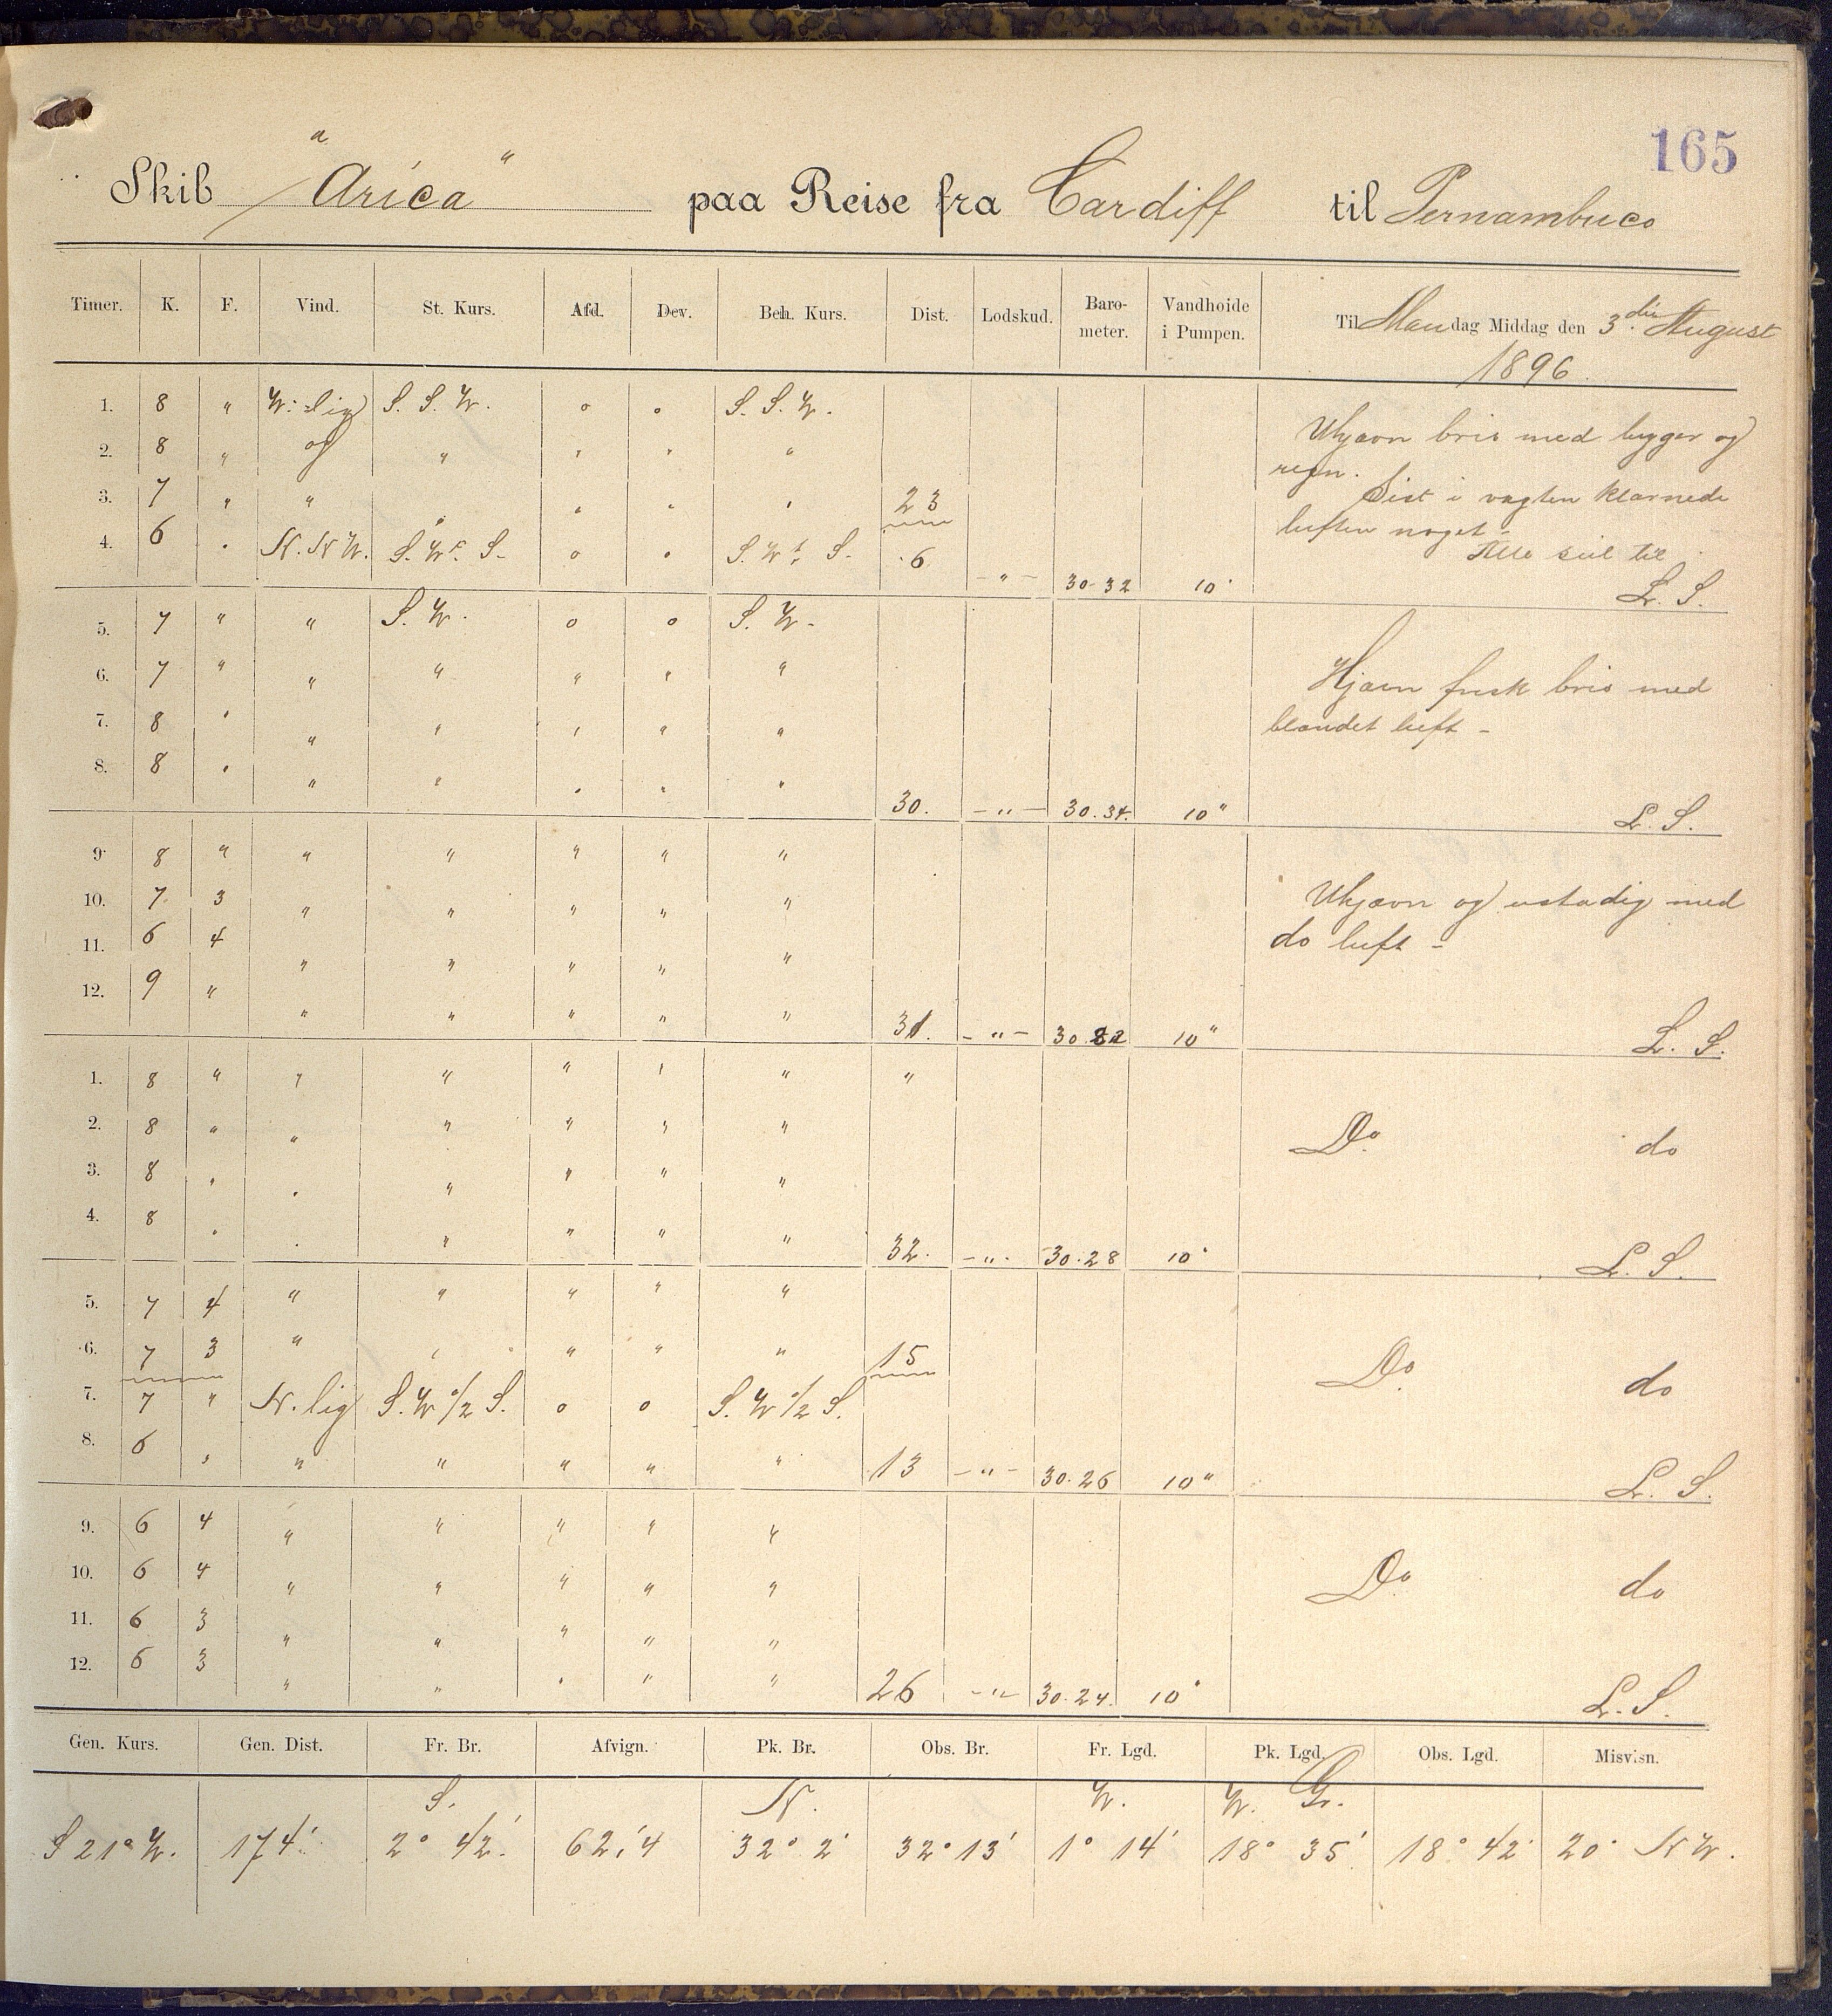 165
Skib "Arica" paa Reise fra Cardiff til Pernambuco
Timer. K. F. Vind. St. Kurs. Afd. Dev. Beh. Kurs. Dist. Lodskud. Baro-meter. Vandhoide i Pumpen. Til Mandag Middag den 3die August
1896.
1. 8 " W.lig S. S. W. o o S. S. W.
Ukjævn bris med bygger og
2. 8 " og " " " "
regn.
3. 7 " " " " " 23
Sist i vagten klarnede
luften noget -
4. 6 " N. N W. S. Wt. S. o " S. Wt. S. 6 - " - 30.32 10"
Alle seil til
L. S.
5. 7 " " S. W. o o S. W.
6. 7 " " " " " "
Hjævn frisk bris med
7. 8 " " " " " "
blandet luft -
8. 8 " " " " " " 30. - " - 30.34. 10"
L. S.
9. 8 " " " " " "
10. 7 3 " " " " "
Ukjævn og ustadig med
11. 6 4 " " " " "
do luft -
12. 9 " " " " " " 31. - " - 10"
L. S.
1. 8 " " " " " " "
2. 8 " " " " " "
Do do
3. 8 " " " " " "
4. 8 " " " " " " 32. - " - 30.28 10"
L. S.
5. 7 4 " " " " "
6. 7 3 " " " " " 15
Do do
7. 7 " N.lig S. W 1/2 S. o o S. W 1/2 S.
8. 6 " " " " " " 13 - " - 30.26 10"
L. S.
9. 6 4 " " " " "
10. 6 4 " " " " "
Do do
11. 6 3 " " " " "
12. 6 3 " " " " " 26 - " - 30.24. 10"
L. S.
Gen. Kurs. Gen. Dist. Fr. Br. Afvign. Pk. Br. Obs. Br. Fr. Lgd. Pk. Lgd. Obs. Lgd. Misvisn.
S. N. W. W. Gr.
S 21° W. 174' 2° 42' 62,4 32° 2' 32° 13' 1° 14' 18° 35' 18° 42' 20° N W.